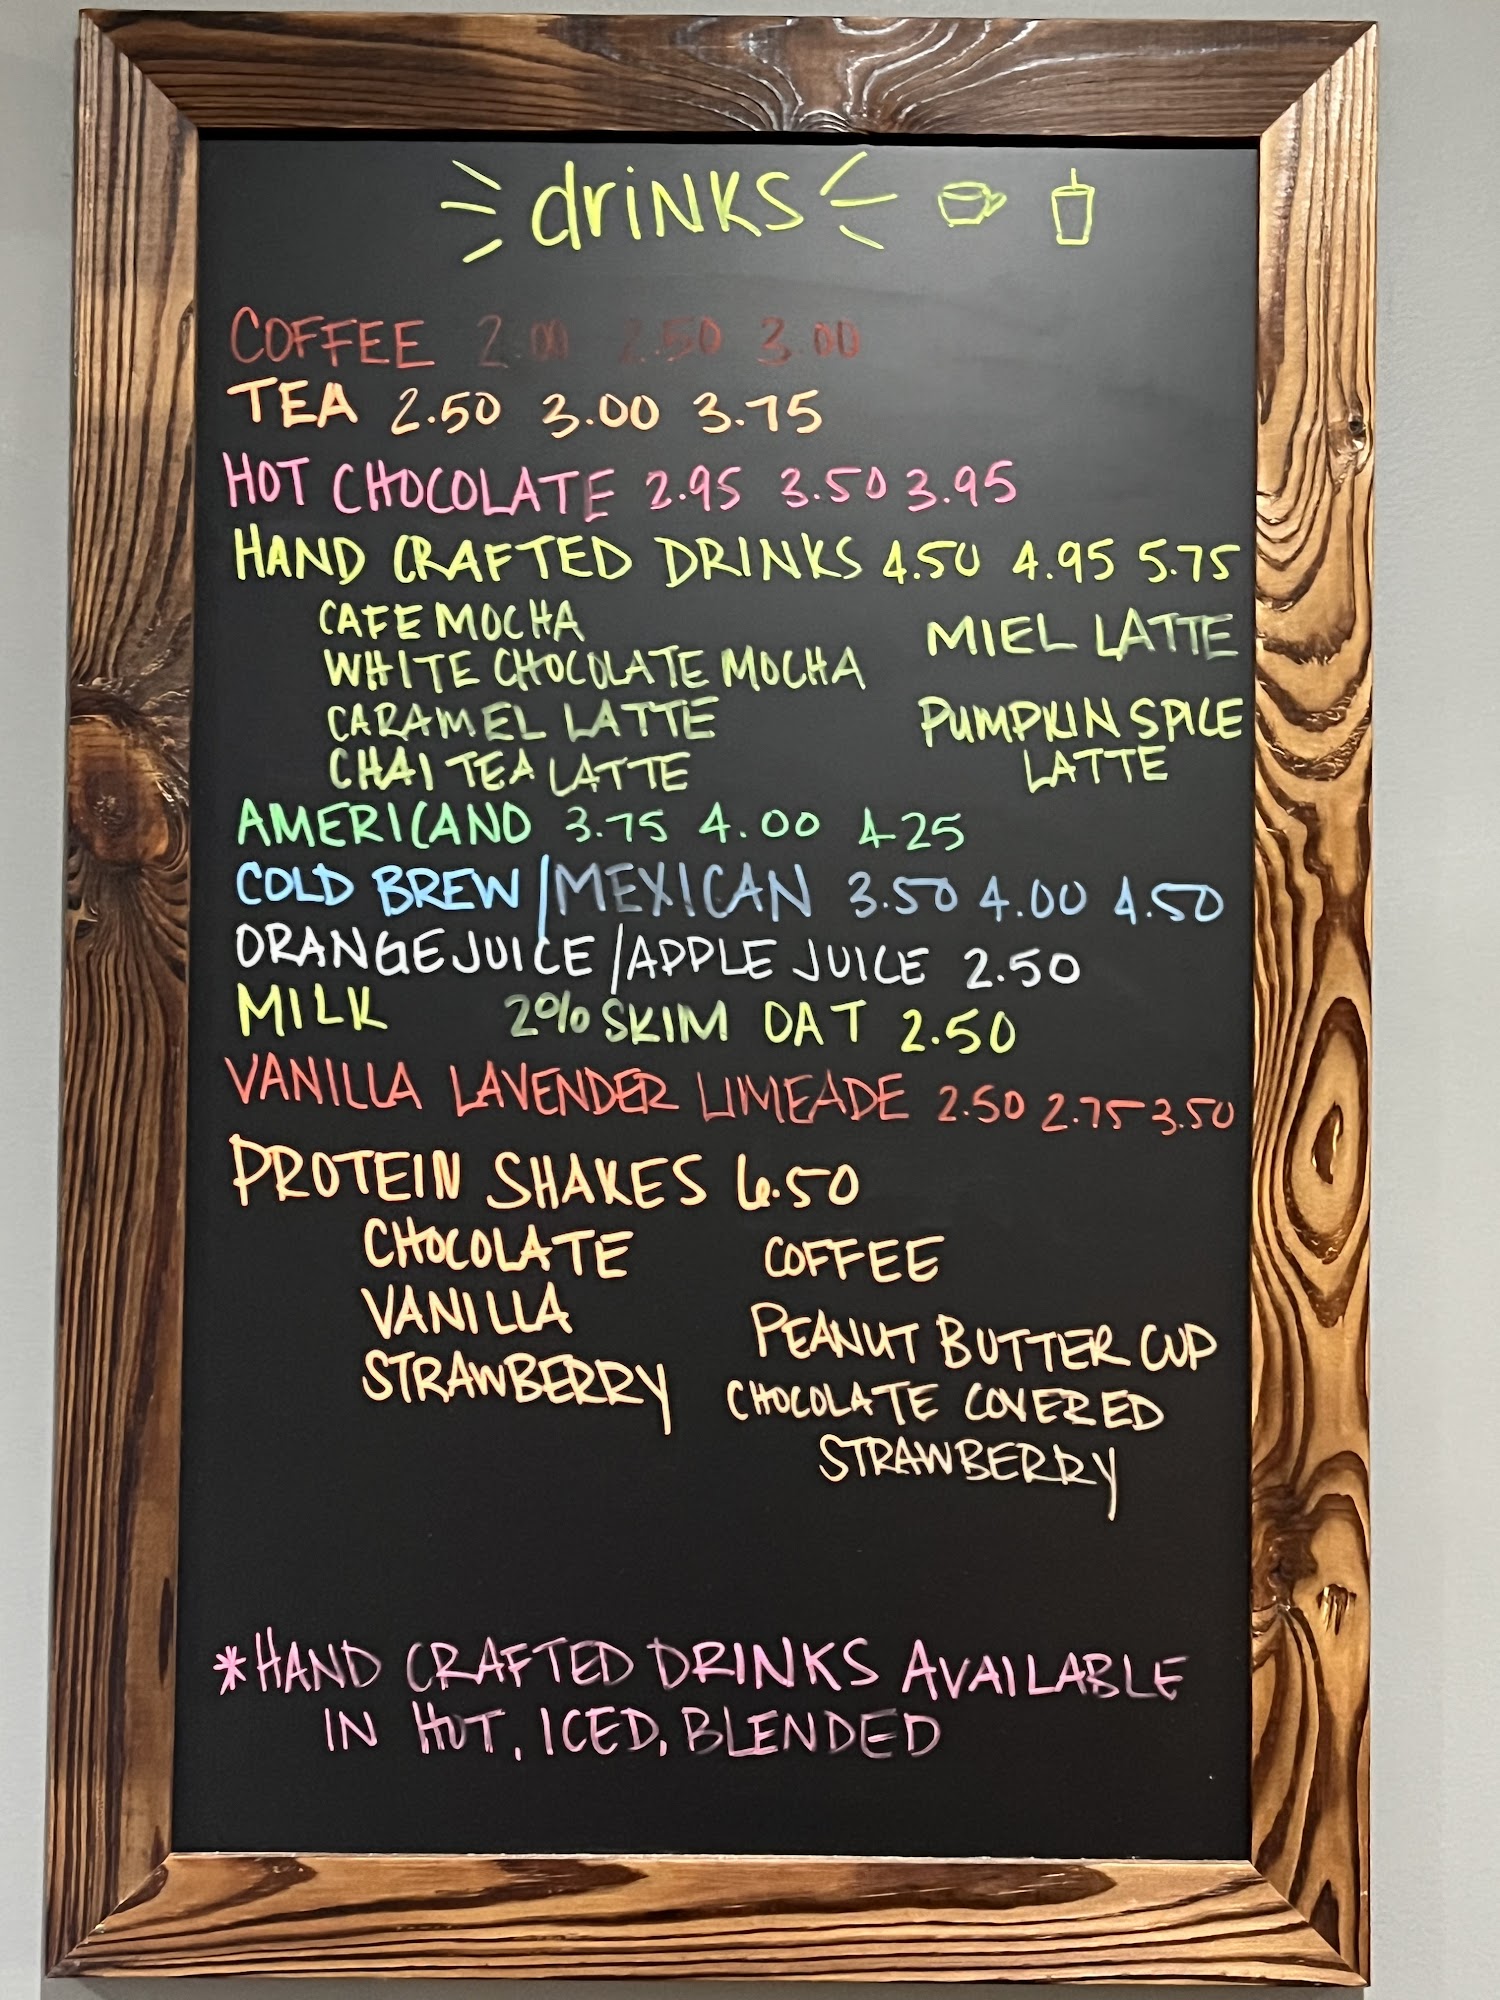 drinks
COFFEE 2.00 2.50 3.00
TEA 2.50 3.00 3.75
HOT CHOCOLATE 2.95 3.50 3.95
HAND CRAFTED DRINKS 4.50 4.95 5.75
CAFE MOCHA
WHITE CHOCOLATE MOCHA
CARAMEL LATTE
CHAI TEA LATTE
MIEL LATTE
PUMPKIN SPICE
LATTE
AMERICANO 3.75 4.00 4.25
COLD BREW/MEXICAN 3.50 4.00 4.50
ORANGE JUICE/APPLE JUICE 2.50
MILK 2% SKIM OAT 2.50
VANILLA LAVENDER LIMEADE 2.50 2.75 3.50
PROTEIN SHAKES 6.50
CHOCOLATE
VANILLA
STRAWBERRY
COFFEE
PEANUT BUTTER CUP
CHOCOLATE COVERED
STRAWBERRY
*HAND CRAFTED DRINKS AVAILABLE
IN HOT, ICED, BLENDED